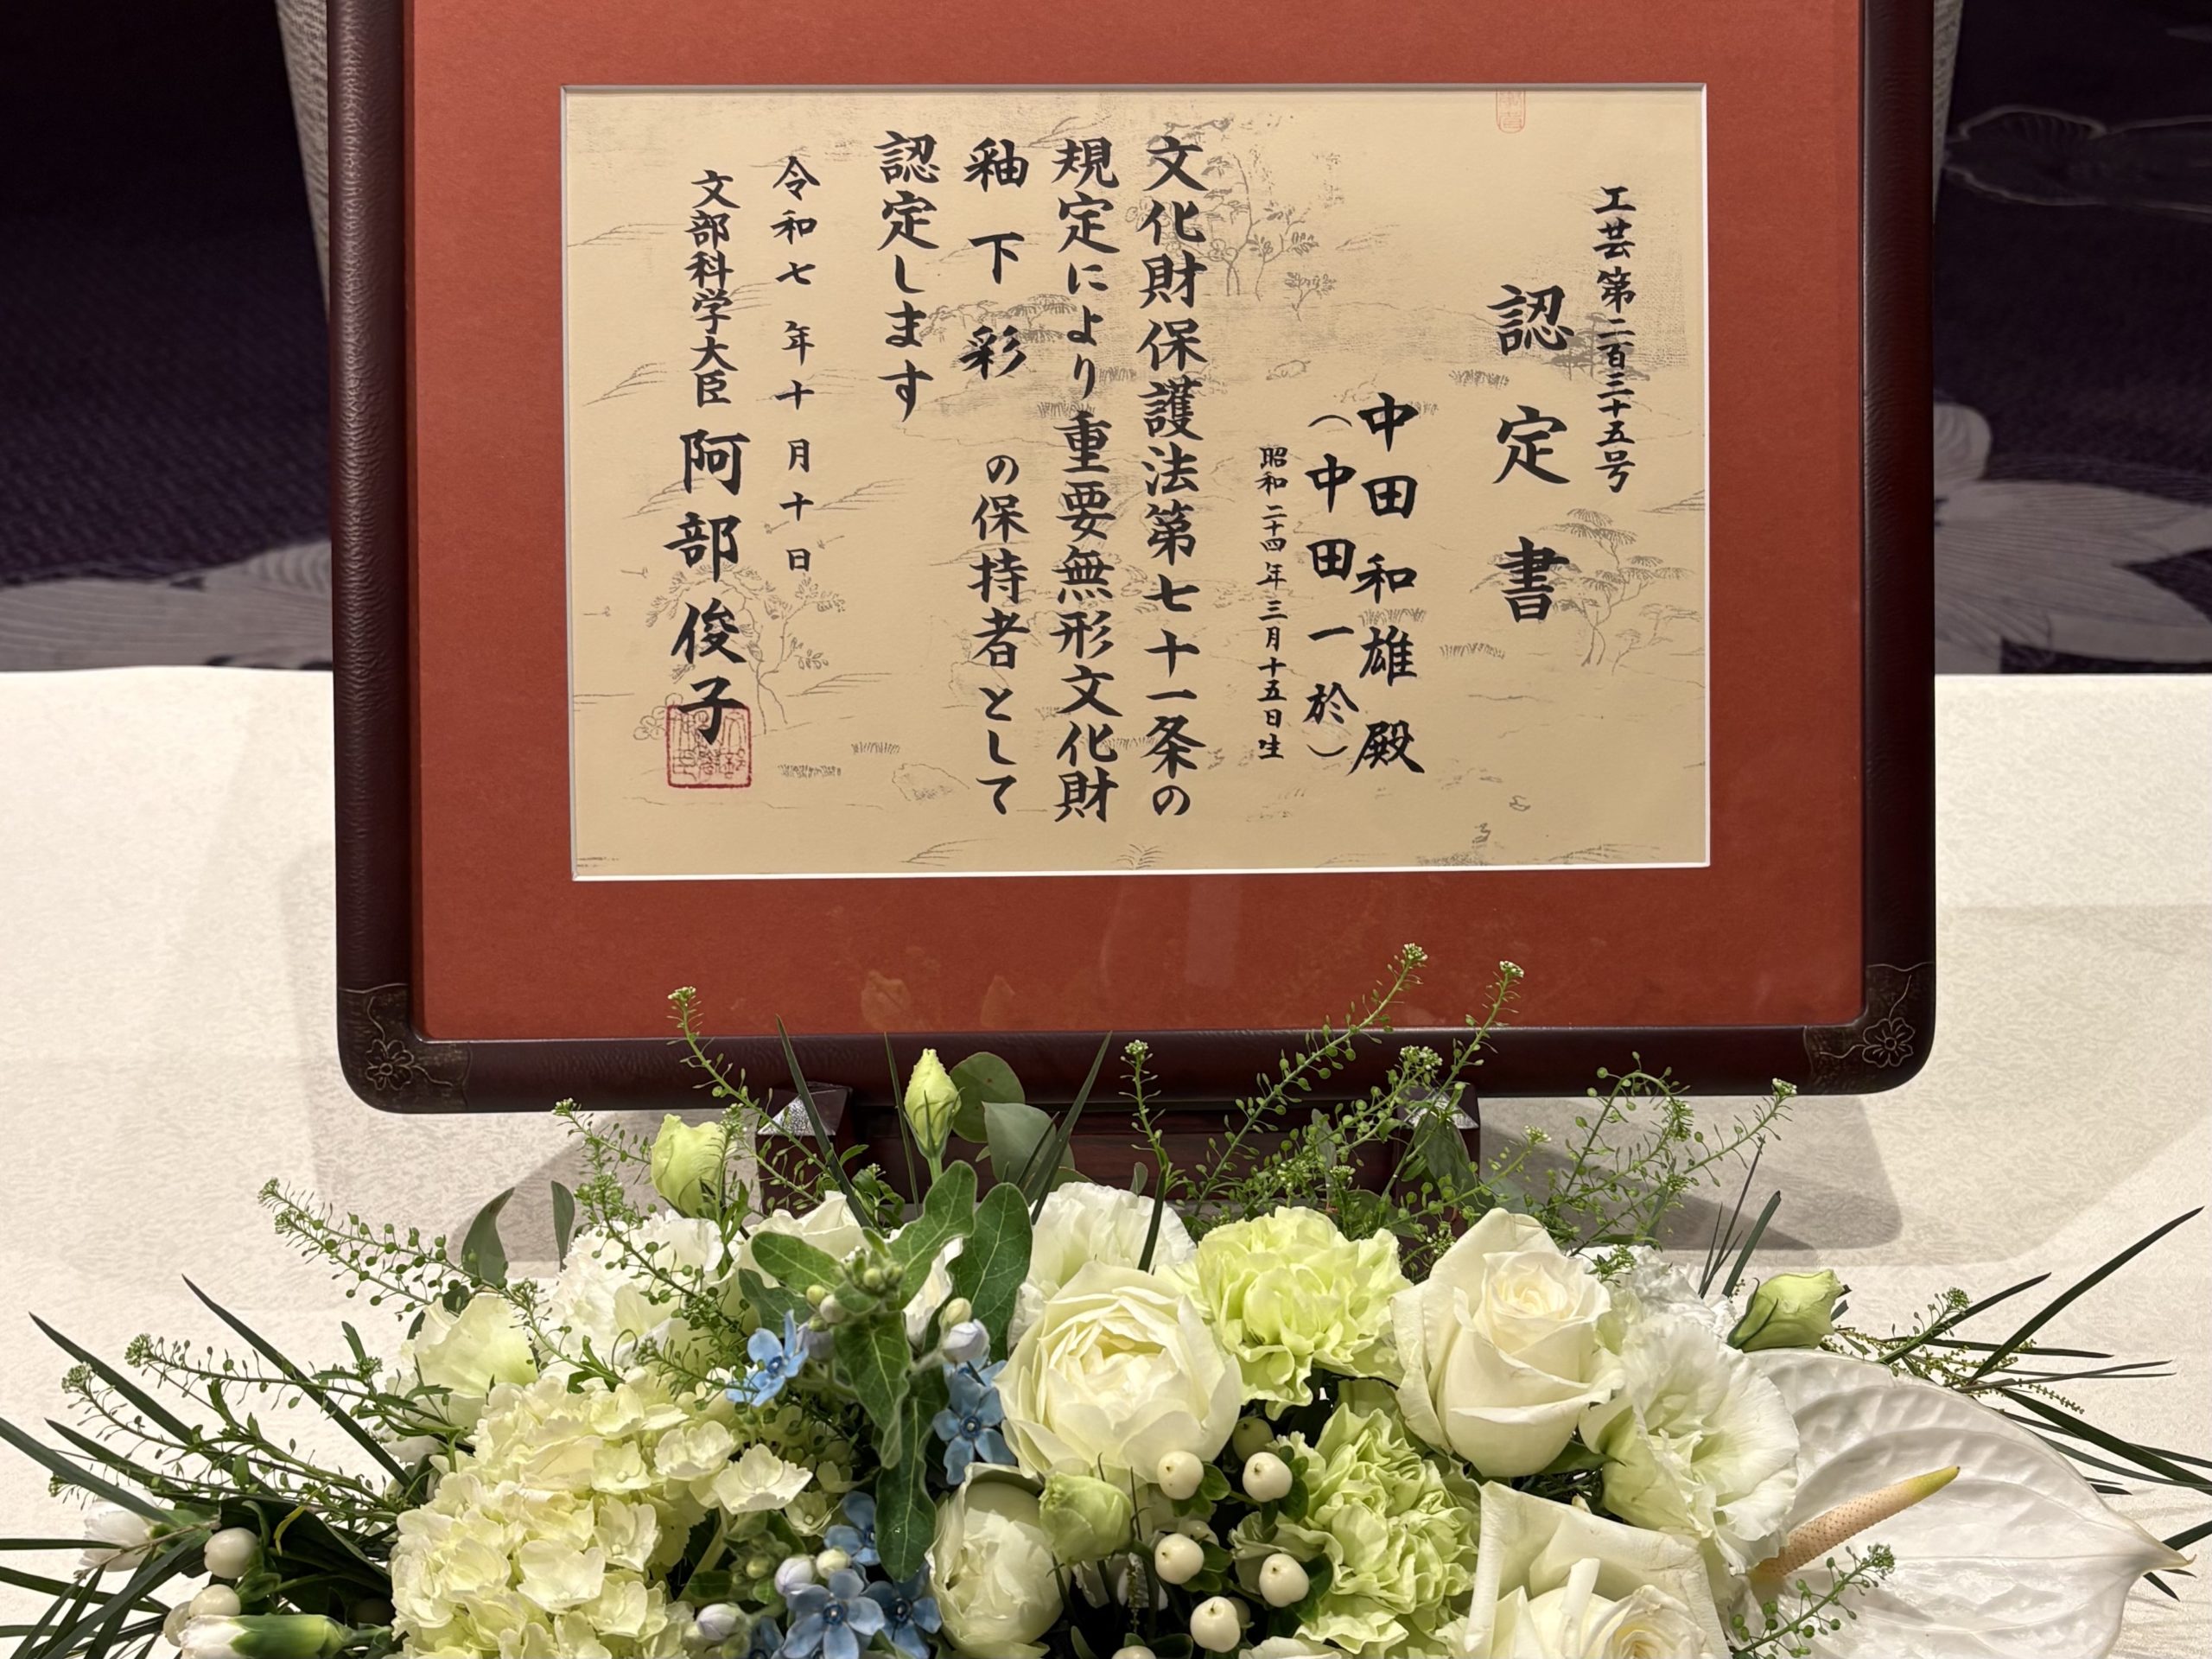 工芸第二百三十五号
認定書
中田和雄殿
（中田一於）
昭和二十四年三月十五日生
文化財保護法第七十一条の
規定により重要無形文化財
釉下彩の保持者として
認定します
令和七年十月十日
文部科学大臣 阿部俊子